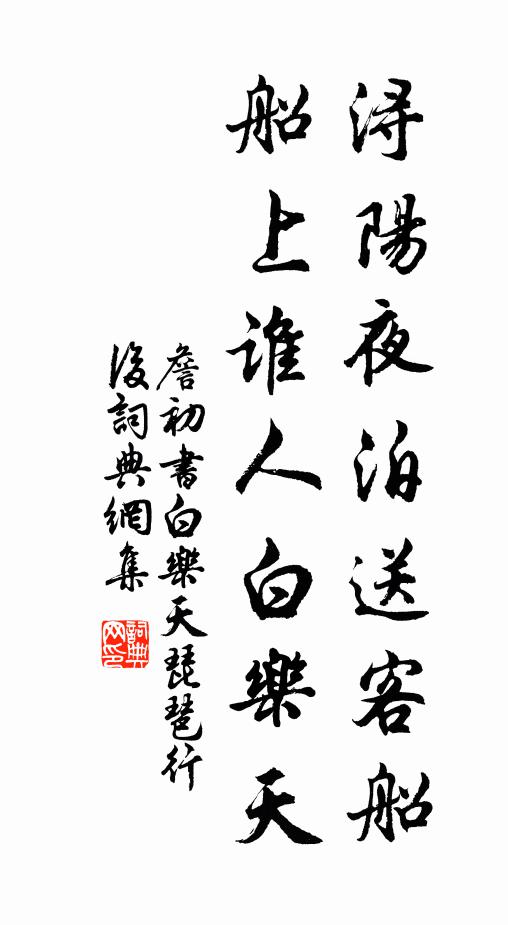 浔陽夜泊送客船
船上誰人白樂天
詹初書白樂天琵琶行
後詞典網集
詞典
网印